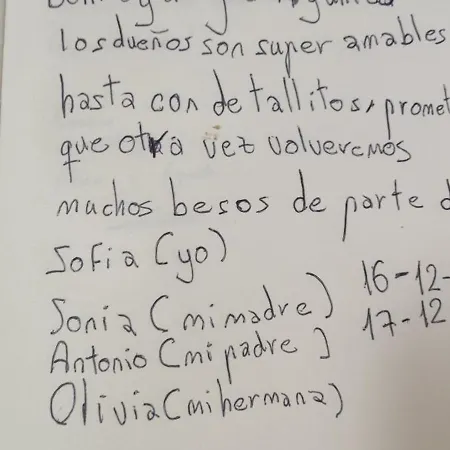 los dueños son super amables
hasta con detallitos, promet
que otra vez volveremos
muchos besos de parte d
Sofia (yo)
Sonia (mi madre) 16-12-
Antonio (mi padre) 17-12
Olivia (mi hermana)